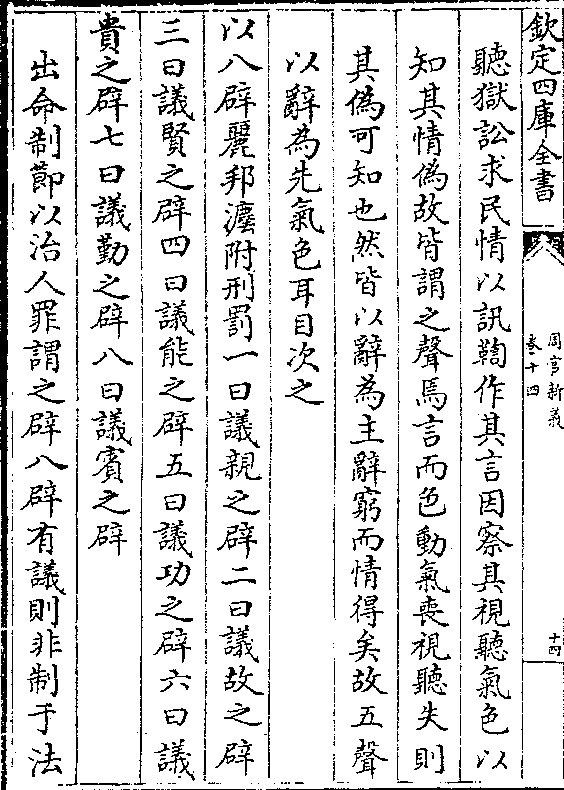 欽定四庫全書
周官新義
卷十四
十四
聽獄訟求民情以訊鞫作其言因察其視聽氣色以
知其情偽故皆謂之聲焉言而色動氣喪視聽失則
其偽可知也然皆以辭為主辭窮而情得矣故五聲
以辭為先氣色耳目次之
以八辟麗邦灋附刑罰一曰議親之辟二曰議故之辟
三曰議賢之辟四曰議能之辟五曰議功之辟六曰議
貴之辟七曰議勤之辟八曰議賓之辟
出命制節以治人罪謂之辟八辟有議則非制于法